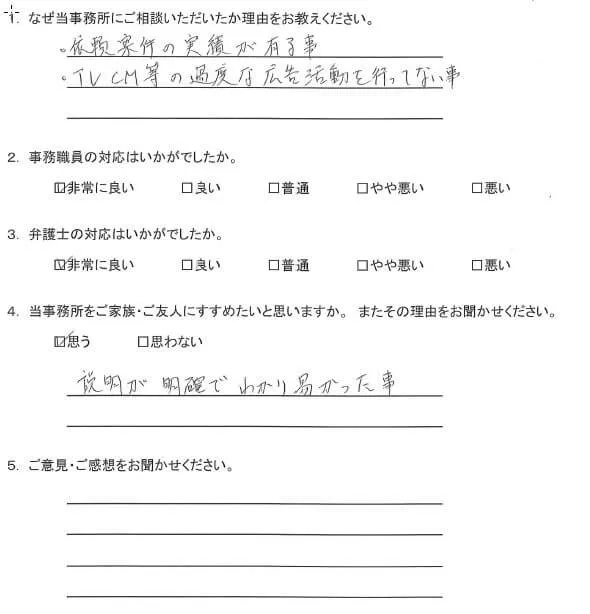 1. なぜ当事務所にご相談いただいたか理由をお教えください。
・依頼案件の実績が有る事
・TV CM等の過度な広告活動を行ってない事
2. 事務職員の対応はいかがでしたか。
☑非常に良い □良い □普通 □やや悪い □悪い
3. 弁護士の対応はいかがでしたか。
☑非常に良い □良い □普通 □やや悪い □悪い
4. 当事務所をご家族・ご友人にすすめたいと思いますか。 またその理由をお聞かせください。
☑思う □思わない
説明が 明確で わかり易かった事
5. ご意見・ご感想をお聞かせください。